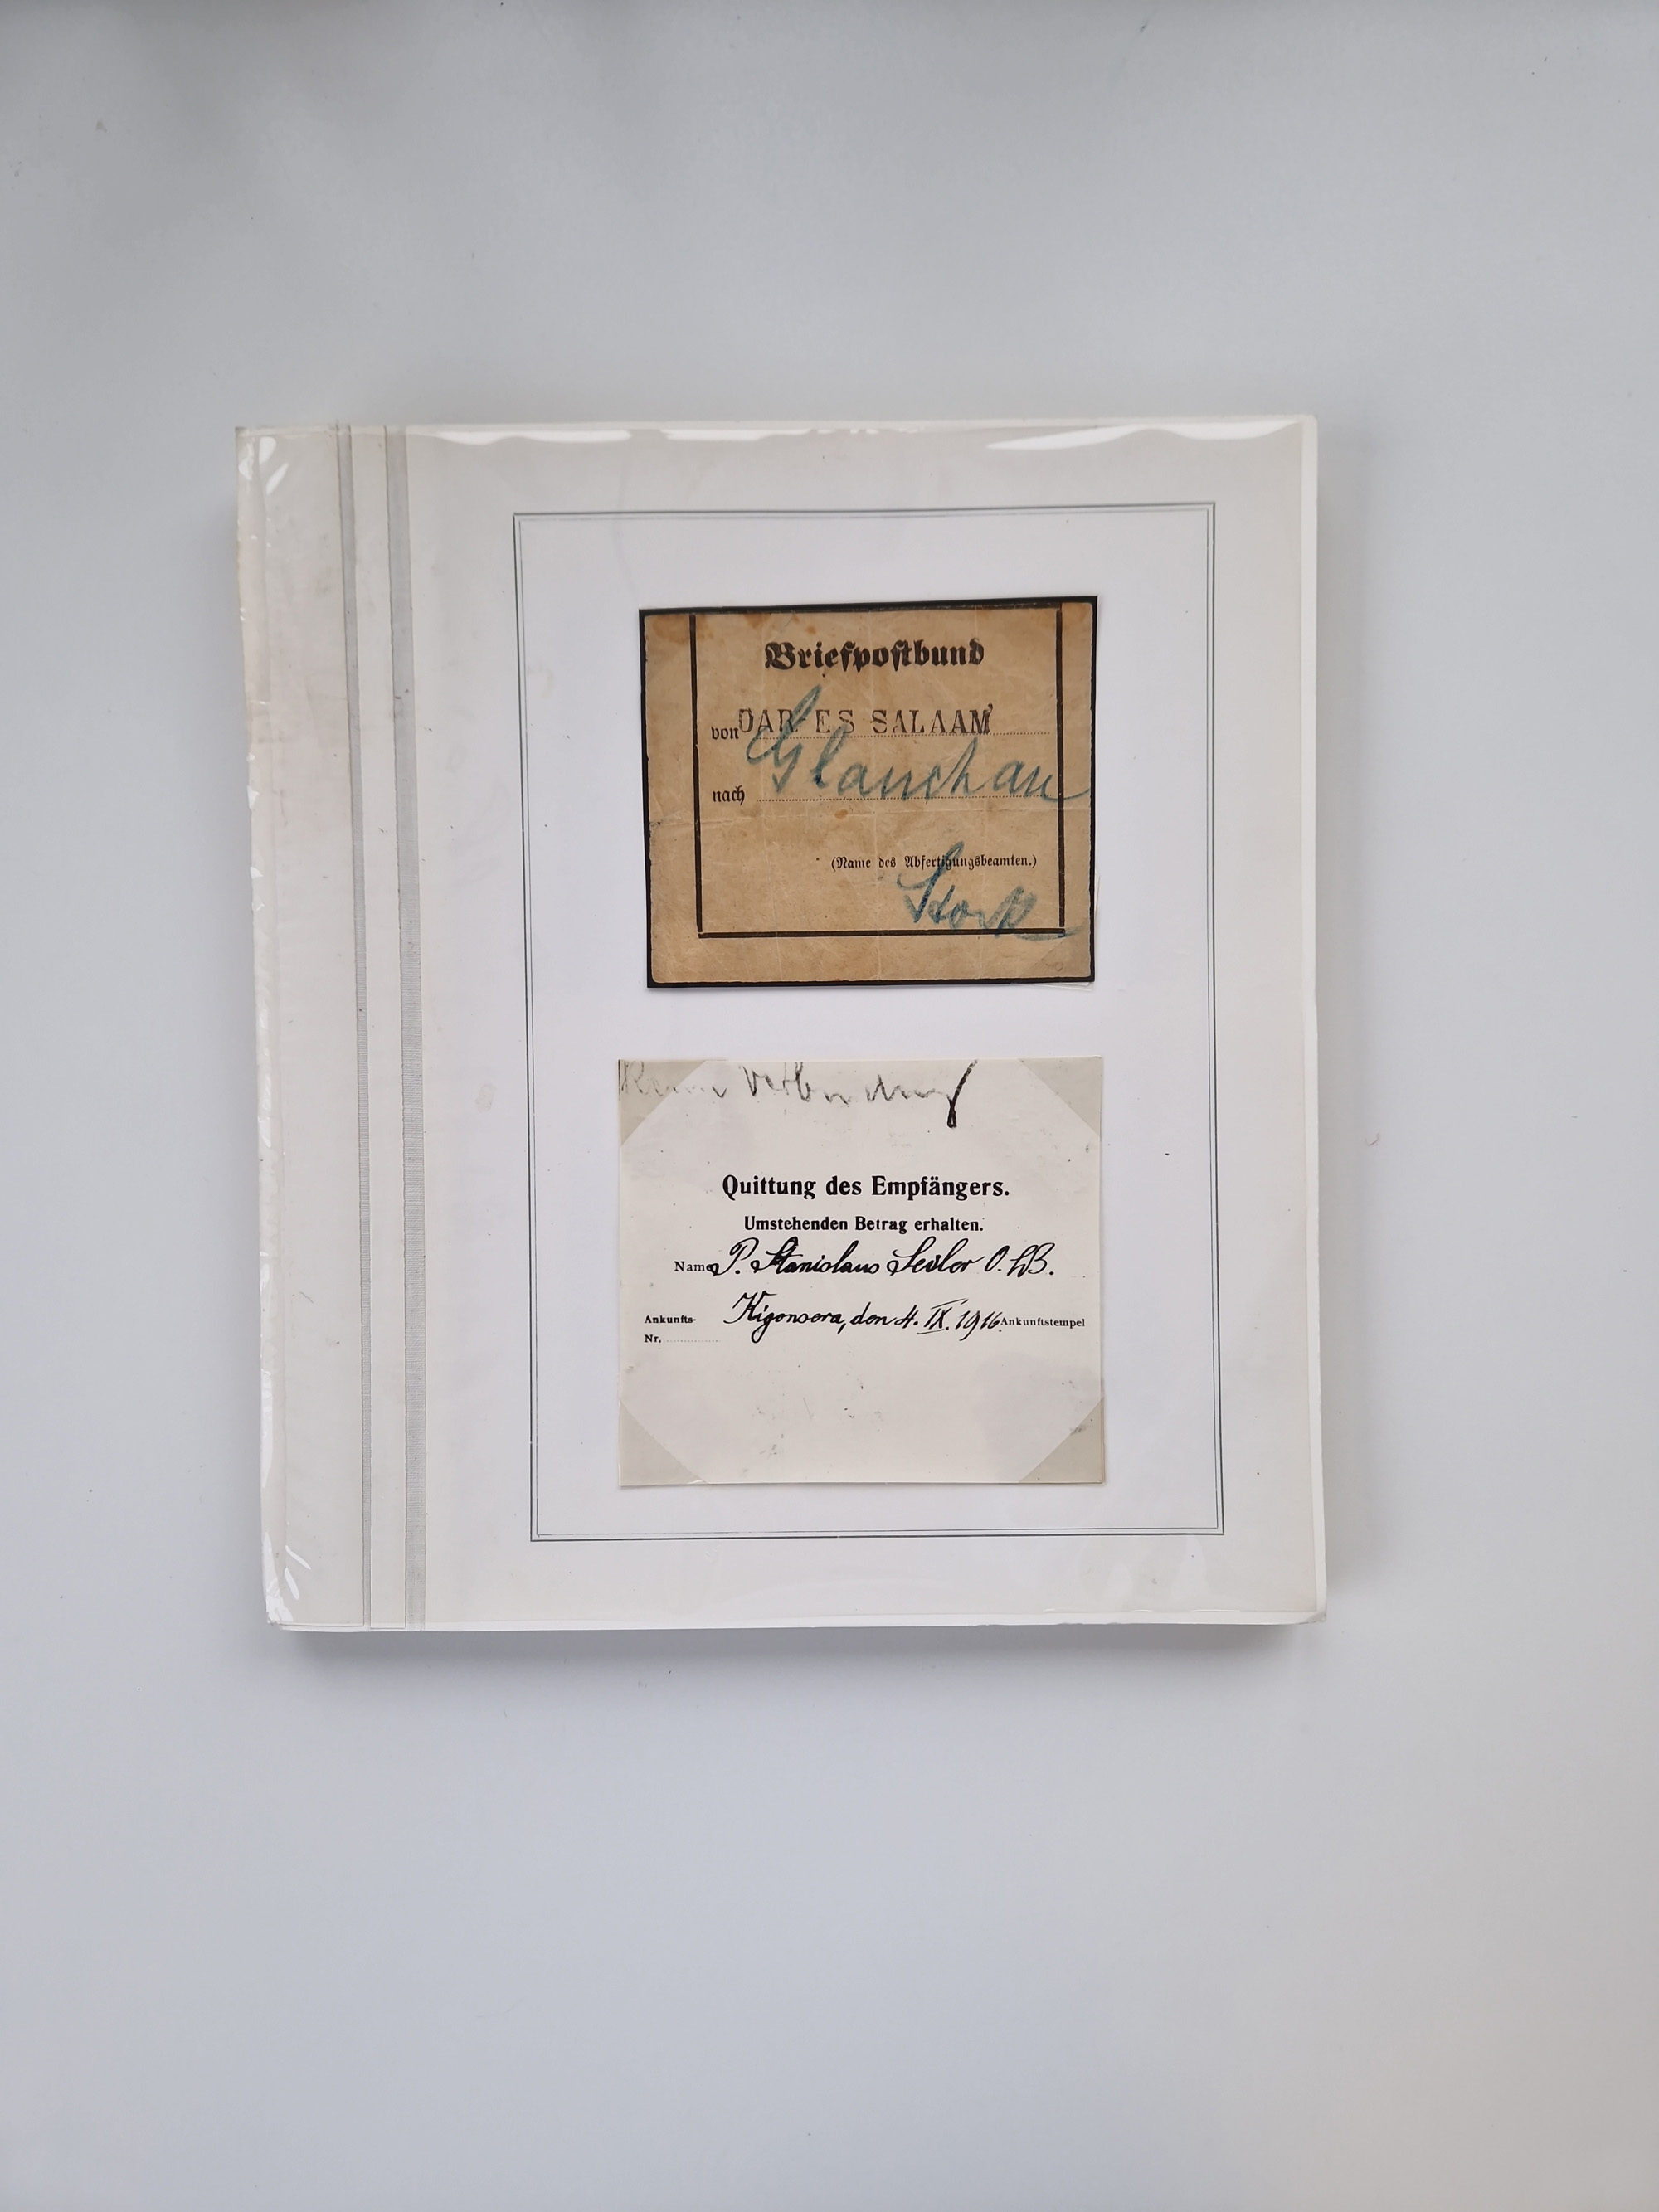 Briefpostbund
von DAR-ES SALAAM
nach Glauchau
(Name des Abfertigungsbeamten.)
Stork
Keine Verbindung
Quittung des Empfängers.
Umstehenden Betrag erhalten.
Name P. Stanislaus Seiler O.S.B.
Ankunfts- Kigonsera, den 4. IX. 1916. Ankunftstempel
Nr.